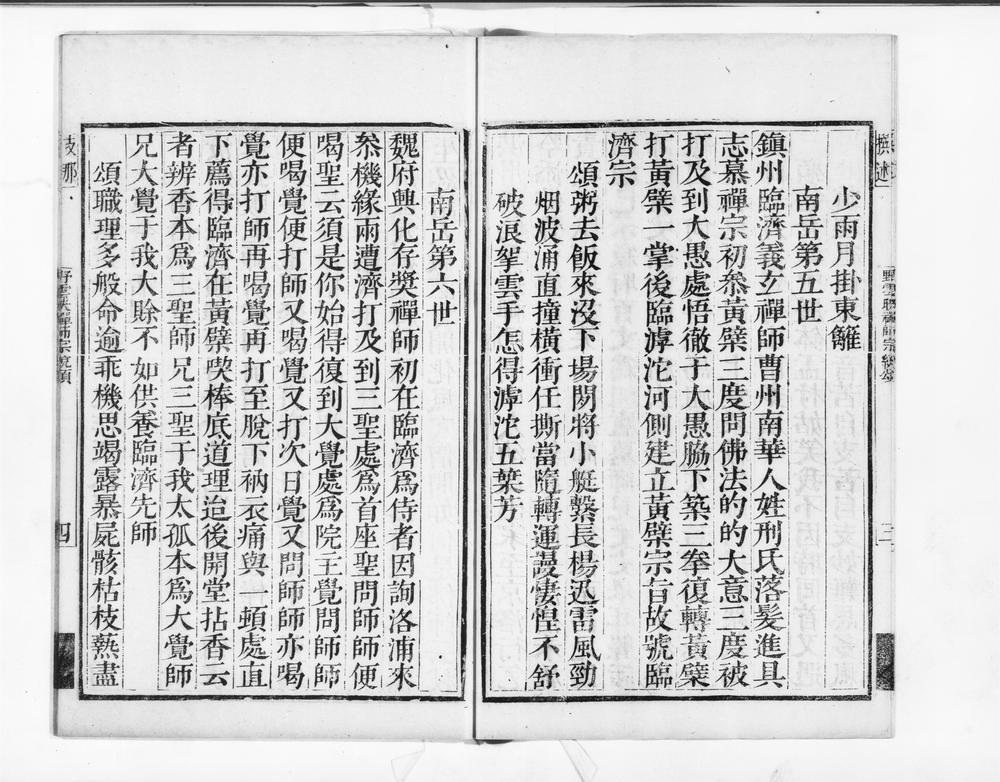 少雨月掛東籬
南岳第五世
鎮州臨濟義玄禪師曹州南華人姓刑氏落髮進具
志慕禪宗初叅黃檗三度問佛法的的大意三度被
打及到大愚處悟徹于大愚脇下築三拳復轉黃檗
打黃檗一掌後臨滹沱河側建立黃檗宗旨故號臨
濟宗
頌粥去飯來沒下場閒將小艇繫長楊迅雷風勁
烟波涌直撞橫衝任撕當隨轉運謾悽惶不舒
破浪拏雲手怎得滹沱五葉芳
南岳第六世
魏府興化存奬禪師初在臨濟爲侍者因詢洛浦來
叅機緣兩遭濟打及到三聖處爲首座聖問師師便
喝聖云須是你始得復到大覺處爲院主覺問師師
便喝覺便打師又喝覺又打次日覺又問師師亦喝
覺亦打師再喝覺再打至脫下衲衣痛與頓處直
下薦得臨濟在黃檗喫棒底道理迨後開堂拈香云
者辨香本爲三聖師兄三聖于我太孤本爲大覺師
兄大覺于我大賖不如供養臨濟先師
頌職理多般命逾乖機思竭露暴屍骸枯枝爇盡
三
四